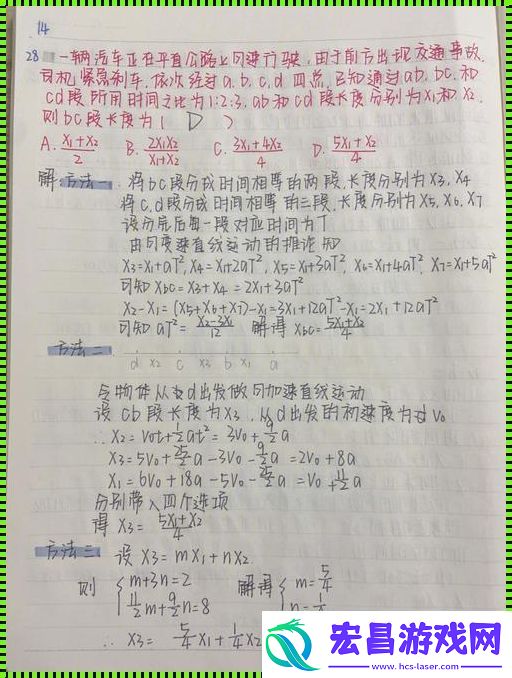 14
28 一辆汽车正在平直公路上匀速行驶,由于前方出现交通事故,
司机紧急刹车,依次经过a.b.c.d 四点,已知通过ab.bc.和
cd段所用时间之比为1:2:3,ab和cd段长度分别为X₁和X₂.
则bc段长度为( D )
A. (X₁+X₂)/2 B. 2X₁X₂/(X₁+X₂) C. (3X₁+4X₂)/4 D. (5X₁+X₂)/4
解:方法一. 将bc段分成时间相等的两段,长度分别为X₃,X₄
将c,d段分成时间相等的三段,长度分别为X₅,X₆,X₇
设分完后每一段对应时间为T
由匀变速直线运动的推论知
X₃=X₁+aT², X₄=X₁+2aT², X₅=X₁+3aT², X₆=X₁+4aT², X₇=X₁+5aT²
可知 Xbc=X₃+X₄=2X₁+3aT²
X₂-X₁=(X₅+X₆+X₇)-X₁=3X₁+12aT²-X₁=2X₁+12aT²
可知 aT²=(X₂-3X₁)/12 解得 Xbc=(5X₁+X₂)/4
方法二
d X₂ c X₃ b X₁ a
令物体从d出发做匀加速直线运动
设cb段长度为X₃,从d出发的初速度为V₀
∴X₂=V₀t+½at²=3V₀+9/2a
X₃=5V₀+25/2a-3V₀-9/2a=2V₀+8a
X₁=6V₀+18a-5V₀-25/2a=V₀+11/2a
分别带入四个选项
得 X₃=(5X₁+X₂)/4
方法三 设X₃=mX₁+nX₂
则 {m+3n=2 解得 {m=5/4
11/2m+9/2n=8
∴X₃=5/4X₁+1/4X₂
宏昌游戏网
www.hcs-laser.com